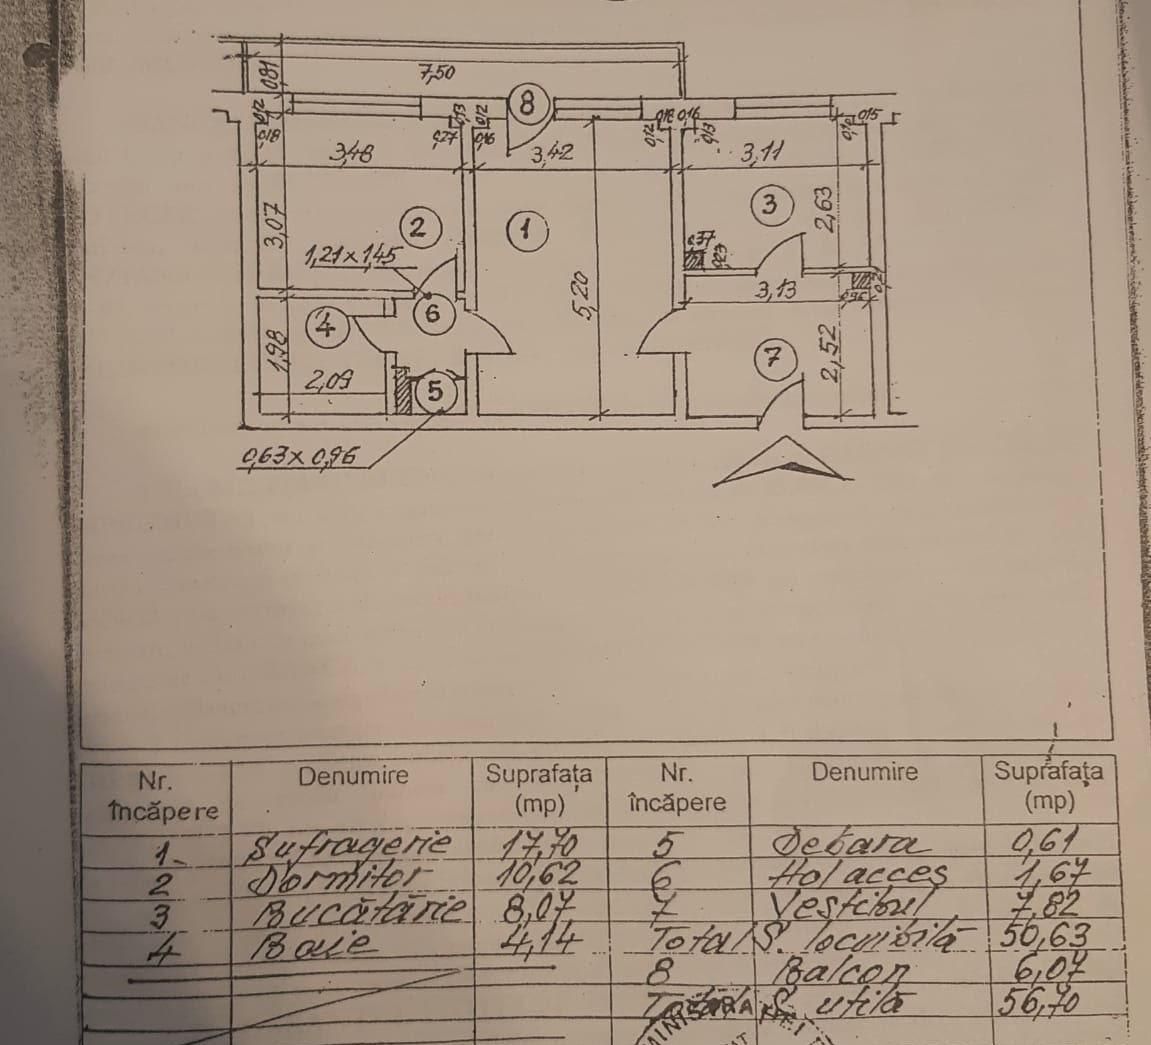 7,50
0,81
8
0,12
0,18
0,27
0,13
0,12
0,16
0,12
0,18
0,16
0,13
0,10
0,15
3,48
3,42
3,11
3,07
2
1
3
2,63
1,21 x 1,45
0,37
0,23
5,20
3,13
0,36
4
6
7
1,98
2,52
2,09
5
0,63 x 0,96
Nr. încăpere Denumire Suprafața (mp) Nr. încăpere Denumire Suprafața (mp)
1 Sufragerie 17,70 5 Debara 0,61
2 Dormitor 10,62 6 Hol acces 1,67
3 Bucătărie 8,07 7 Vestibul 7,82
4 Baie 4,14 Total S. locuibilă 50,63
8 Balcon 6,07
Total S. utilă 56,70